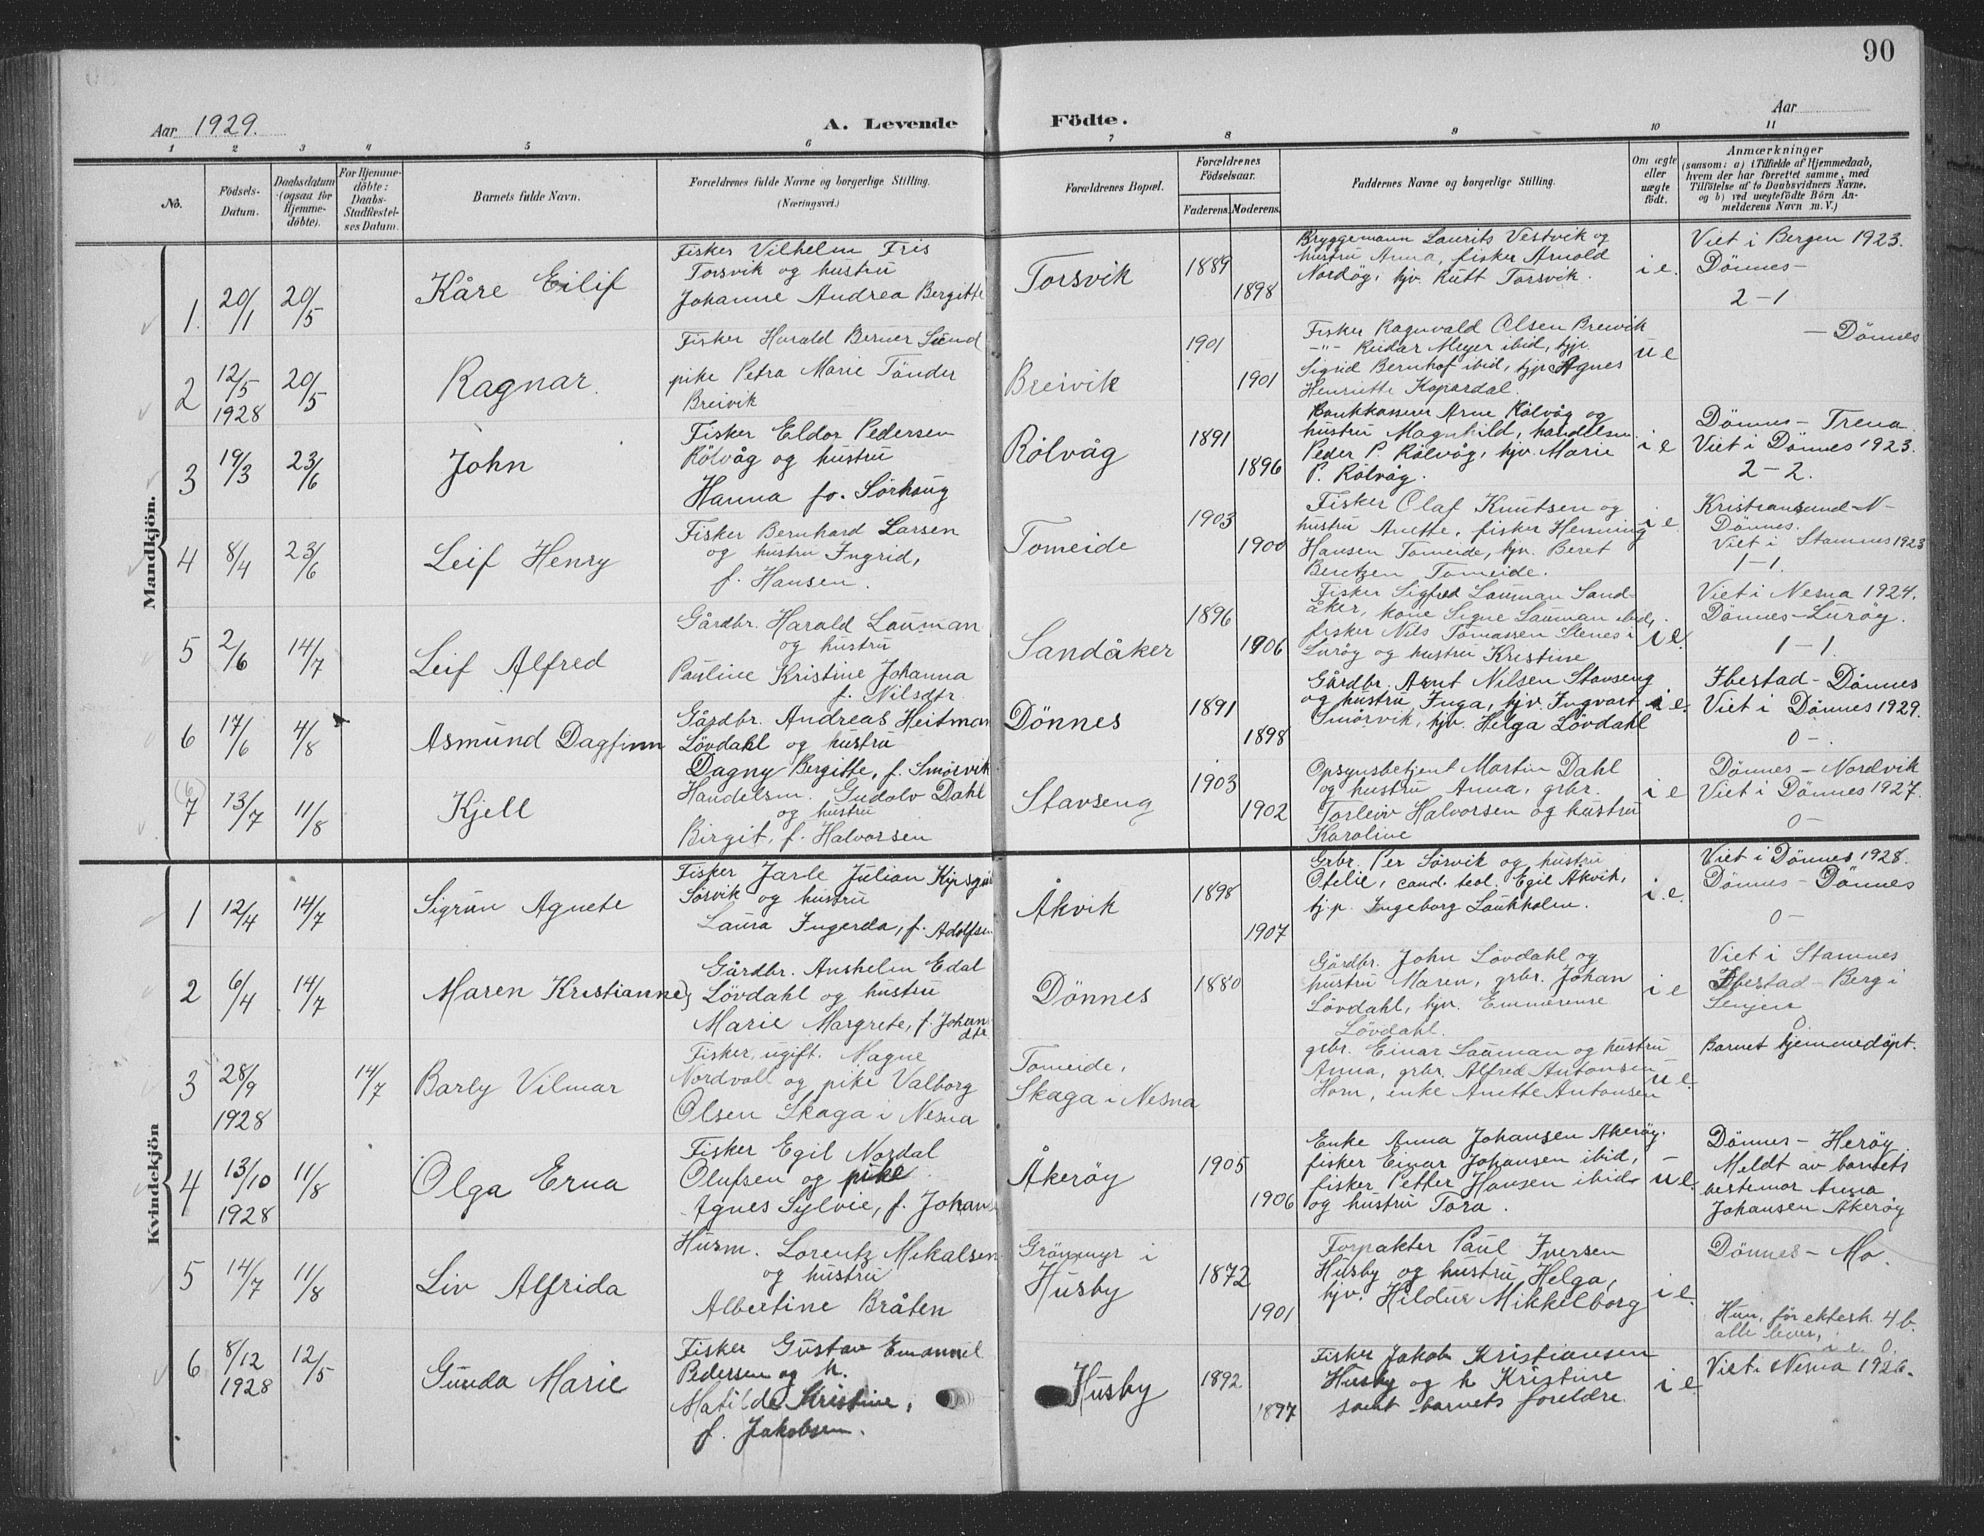 90
Aar 1929.
A. Levende Födte.
Aar
1 2 3 4 5 6 7 8 9 10 11
No.
Födsels-
Datum.
Daabsdatum
(ogsaa for
Hjemme-
döbte).
For Hjemme-
döbte:
Daabs-
Stadfæstel-
ses Datum.
Barnets fulde Navn.
Forældrenes fulde Navne og borgerlige Stilling.
(Næringsvei.)
Forældrenes Bopæl.
Forældrenes
Födselsaar.
Faderens. Moderens.
Faddernes Navne og borgerlige Stilling.
Om ægte
eller
uægte
födt.
Anmærkninger
(saasom: a) i Tilfælde af Hjemmedaab,
hvem der har forrettet samme, med
Tilföielse af to Daabsvidners Navne,
og b) ved uægtefödte Börn An-
melderens Navn m. V.)
Mandkjön.
1. 20/1 20/5
Kåre Eilif
Fisker Vilhelm Fris
Torsvik og hustru
Johanne Andrea Bergitte
Torsvik
1889
1898
Bryggemann Laurits Vestvik og
hustru Anna, fisker Arnold
Nordøg, hjv. Rutt Torsvik.
i e.
Viet i Bergen 1923.
Dönnes-
2-1
2 12/5 1928 20/5
Ragnar.
Fisker Harald Berner Sund
pike Petra Marie Tönder
Breivik
Breivik
1901
1901
Fisker Ragnvald Olsen Breivik
-"- Reidar Meyer ibid, hjv.
Sigrid Bernhof ibid, hjp Agnes
Henriette Kopardal.
u e
- Dönnes
3 19/3 23/6
John
Fisker Eldor Pedersen
Rölvåg og hustru
Hanna fo. Sörhaug
Rölvåg
1891
1896
Bankkasserer Arne Rölvåg og
hustru Magnhild, handelsm.
Peder P. Rölvåg, hjv. Marie
P. Rölvåg.
i e
Dönnes - Trena
Viet i Dönnes 1923.
2-2.
4 8/4 23/6
Leif Henry
Fisker Bernhard Larsen
og hustru Ingrid,
f. Hansen.
Tomeide
1903
1900
Fisker Olaf Knutsen og
hustru Anette, fisker Henning
Hansen Tomeide, hjv. Beret
Bentzen Tomeide.
i e
Kristiansund N-
Dönnes.
Viet i Stamnes 1923
1-1.
5 2/6 14/7
Leif Alfred
Gårdbr. Harald Lauman
og hustru
Pauline Kristine Johanna
f. Nilsdtr.
Sandåker
1896
1906
Fisker Sigfred Lauman Sand-
åker, kone Signe Lauman ibid,
fisker Nils Tomassen Stenes i
Luröy og hustru Kristine
i e.
Viet i Nesna 1924.
Dönnes-Luröy.
1-1.
6 17/6 4/8
Asmund Dagfinn
Gårdbr. Andreas Heitman
Lövdahl og hustru
Dagny Bergitte, f. Smörvik
Dönnes
1891
1898
Gårdbr. Arnt Nilsen Stavseng
og hustru Inga, hjv. Ingvart
Smörvik, hjv. Helga Lövdahl
i e.
Ibestad - Dönnes
Viet i Dönnes 1929.
0-.
(6)
7 13/7 11/8
Kjell
Handelsm. Gudolv Dahl
og hustru
Birgit, f. Halvorsen
Stavseng
1903
1902
Opsynsbetjent Martin Dahl
og hustru Anna, grbr.
Torleiv Halvorsen og hustru
Karoline
i e
Dönnes - Nordvik
Viet i Dönnes 1927.
0-
Kvindekjön
1 12/4 14/7
Sigrun Agnete
Fisker Jarle Julian
Sörvik og hustru
Laura Ingerda, f. Adolfsen
Åkvik
1898
1907
Grbr. Per Sörvik og hustru
Otelie, cand. teol. Egil Åkvik,
hjp. Ingeborg Laukholm.
i e.
Viet i Dönnes 1928.
Dönnes - Dönnes
0-
2 6/4 14/7
Maren Kristianne
Gårdbr. Anshelm Edal
Lövdahl og hustru
Marie Margrete, f. Johan
dtr
Dönnes
1880
Gårdbr. John Lövdahl og
hustru Maren, grbr. Johan
Lövdahl, hjv. Emmerense
Lövdahl.
i e
Viet i Stamnes
Ibestad - Berg i
Senjen
0
3 28/9 1928 14/7
Barly Vilmar
Fisker, ugift. Magne
Nordvoll og pike Valborg
Olsen Skaga i Nesna
Tomeide,
Skaga i Nesna
grbr. Einar Lauman og hustru
Anna, grbr Alfred Antonsen
Horn, enke Anette Antonsen
u e.
Barnet hjemmedöpt.
4 13/10 1928 11/8
Olga Erna
Fisker Egil Nordal
Olufsen og pike
Agnes Sylvie, f. Johans
Åkeröy
1905
1906
Enke Anna Johansen Akeröy.
fisker Einar Johansen ibid,
fisker Petter Hansen ibid
og hustru Tora.
u e.
Dönnes - Heröy
Meldt av barnets
bestemor Anna
Johansen Åkeröy
5 14/7 11/8
Liv Alfrida
Husm. Lorentz Mikalsen
og hustru
Albertine Bråten
Grönmyr i
Husby
1872
1901
Forpakter Paul Iversen
Husby og hustru Helga,
hjv. Hildur Mikkelborg
i e.
Dönnes - Mo.
Hun, för ektesk. 4 b.
alle lever,
i e. 0.
6 8/12 1928 12/5
Gunda Marie
Fisker Gustav Emanuel
Pedersen og h.
Matilde Kristine,
f. Jakobsen.
Husby
1892
1897
Fisker Jakob Kristiansen
Husby og h Kristine
samt barnets foreldre.
i e
Viet i Nesna 1926.